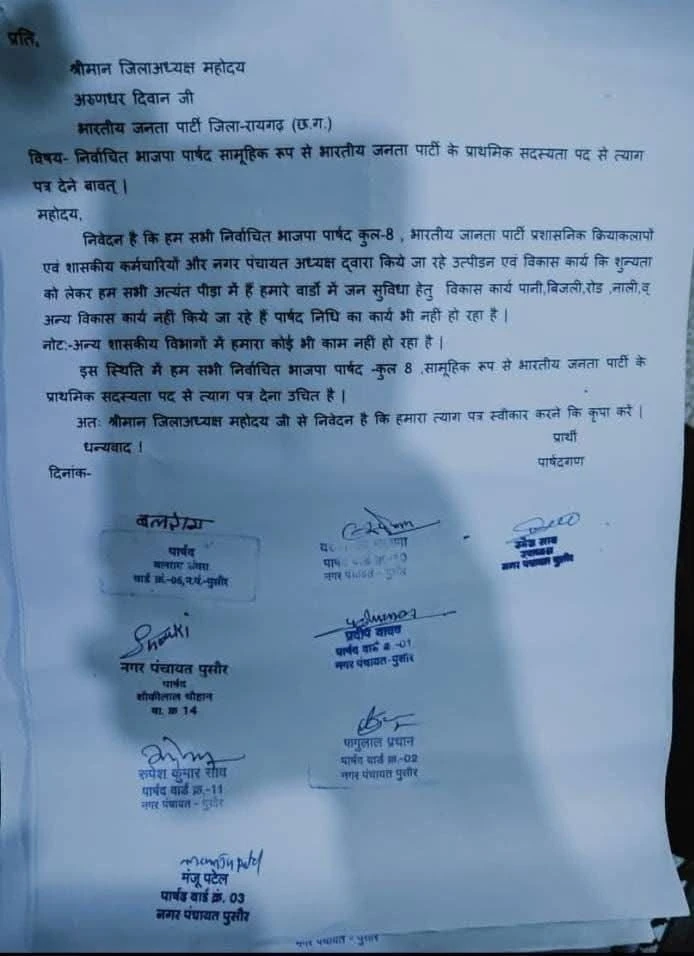 प्रति,
श्रीमान जिलाअध्यक्ष महोदय
अरुणधर दिवान जी
भारतीय जनता पार्टी जिला-रायगढ़ (छ.ग.)
विषय- निर्वाचित भाजपा पार्षद सामूहिक रूप से भारतीय जनता पार्टी के प्राथमिक सदस्यता पद से त्याग
पत्र देने बावत् |
महोदय,
निवेदन है कि हम सभी निर्वाचित भाजपा पार्षद कुल-8 , भारतीय जानता पार्टी प्रशासनिक क्रियाकलापों
एवं शासकीय कर्मचारियों और नगर पंचायत अध्यक्ष द्वारा किये जा रहे उत्पीडन एवं विकास कार्य कि शुन्यता
को लेकर हम सभी अत्यंत पीड़ा में हैं हमारे वार्डो में जन सुविधा हेतु विकास कार्य पानी,बिजली,रोड ,नाली,व्
अन्य विकास कार्य नहीं किये जा रहे हैं पार्षद निधि का कार्य भी नहीं हो रहा है |
नोट:-अन्य शासकीय विभागों में हमारा कोई भी काम नहीं हो रहा है |
इस स्थिति में हम सभी निर्वाचित भाजपा पार्षद -कुल 8 ,सामूहिक रूप से भारतीय जनता पार्टी के
प्राथमिक सदस्यता पद से त्याग पत्र देना उचित है |
अतः श्रीमान जिलाअध्यक्ष महोदय जी से निवेदन है कि हमारा त्याग पत्र स्वीकार करने कि कृपा करें |
धन्यवाद !
प्रार्थी
पार्षदगण
दिनांक-
बलराम
पार्षद
बलराम
वार्ड क्रं.-06,न.पं.-पुसौर
नगर पंचायत - पुसौर
उमेश साव
उपाध्यक्ष
नगर पंचायत पुसौर
नगर पंचायत पुसौर
पार्षद
शौकीलाल चौहान
वा. क्र 14
प्रदीप यादव
पार्षद वार्ड क्र.-01
नगर पंचायत-पुसौर
रुपेश कुमार साव
पार्षद वार्ड क्र.-11
नगर पंचायत - पुसौर
पागुलाल प्रधान
पार्षद वार्ड क्र.-02
नगर पंचायत पुसौर
manju patel
मंजू पटेल
पार्षद वार्ड क्रं. 03
नगर पंचायत पुसौर
नगर पंचायत - पुसौर